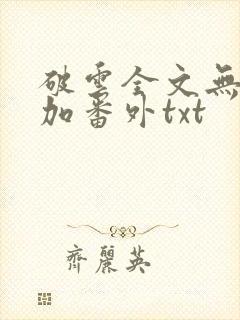 破雲全文無
加番外txt
齊麗英